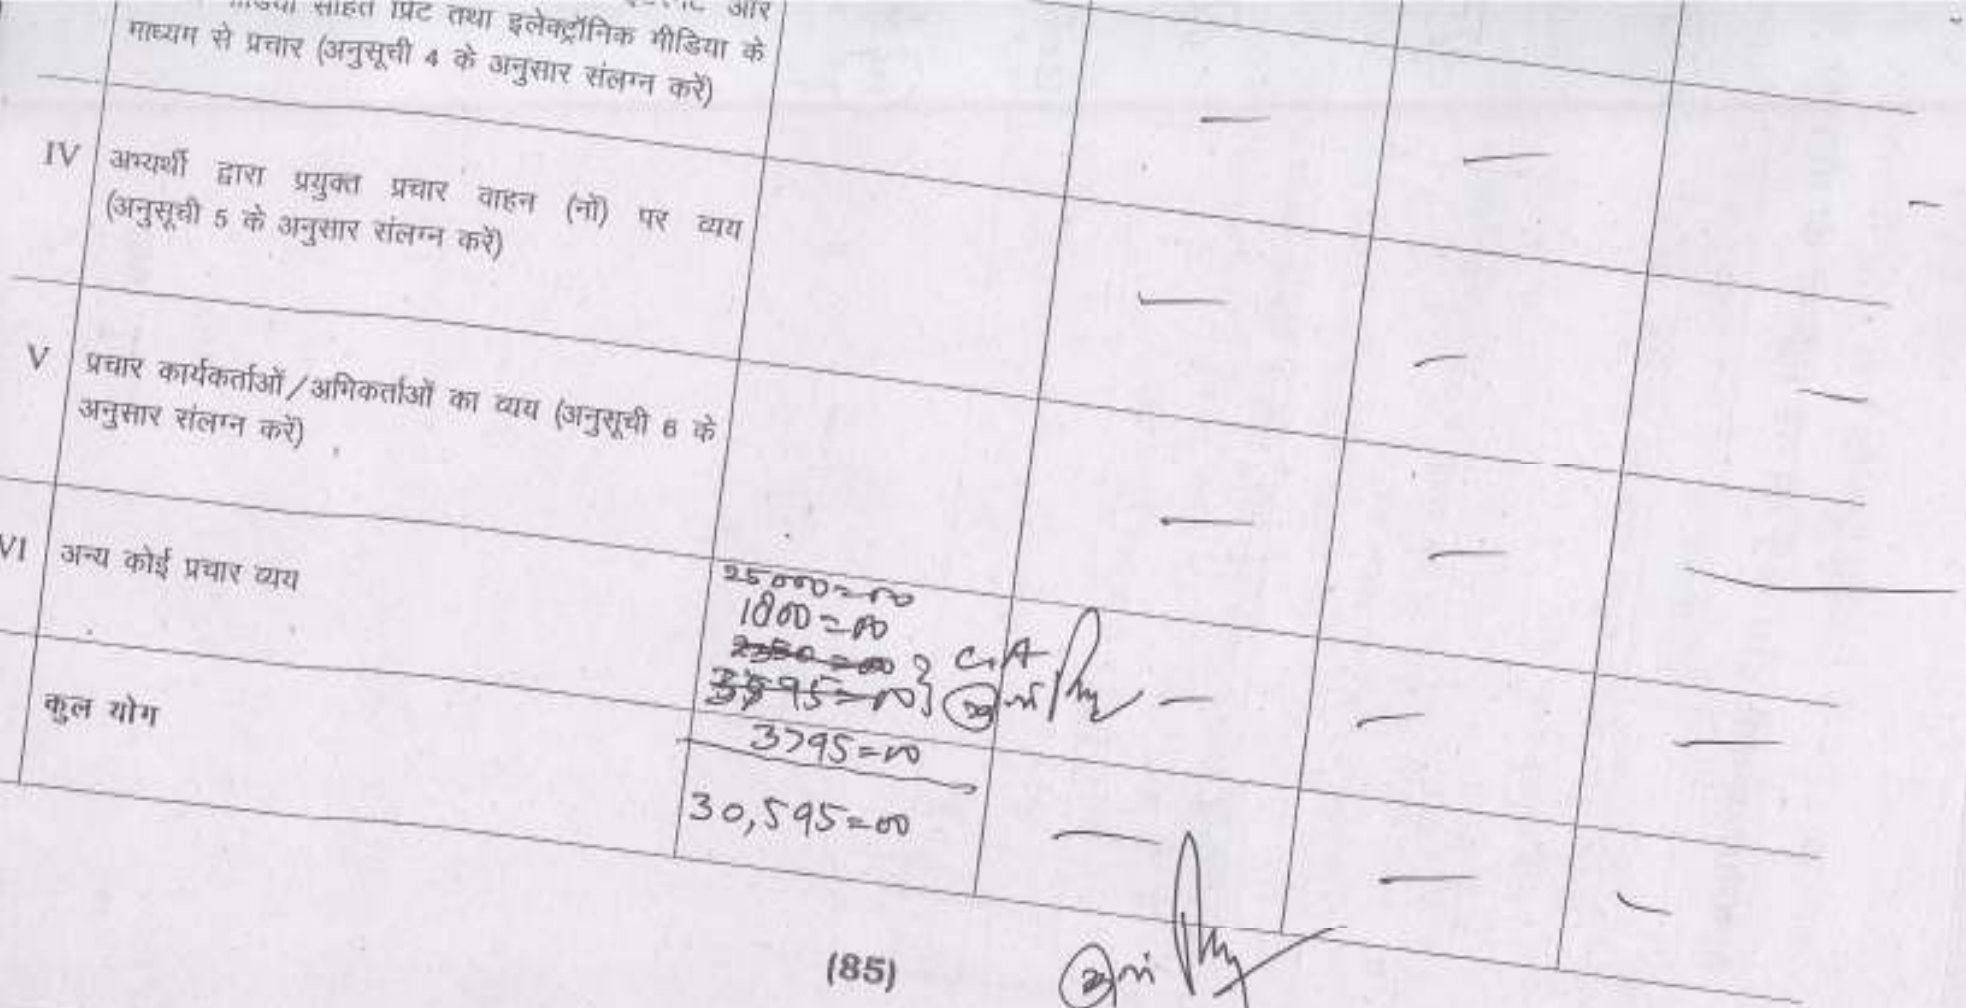 मीडिया सहित प्रिंट तथा इलेक्ट्रॉनिक मीडिया के
माध्यम से प्रचार (अनुसूची 4 के अनुसार संलग्न करें)
IV अभ्यर्थी द्वारा प्रयुक्त प्रचार वाहन (नों) पर व्यय
(अनुसूची 5 के अनुसार संलग्न करें)
V प्रचार कार्यकर्ताओं/अभिकर्ताओं का व्यय (अनुसूची 6 के
अनुसार संलग्न करें)
VI अन्य कोई प्रचार व्यय
25000=00
1800=00
3795=00
कुल योग
30,595=00
(85)